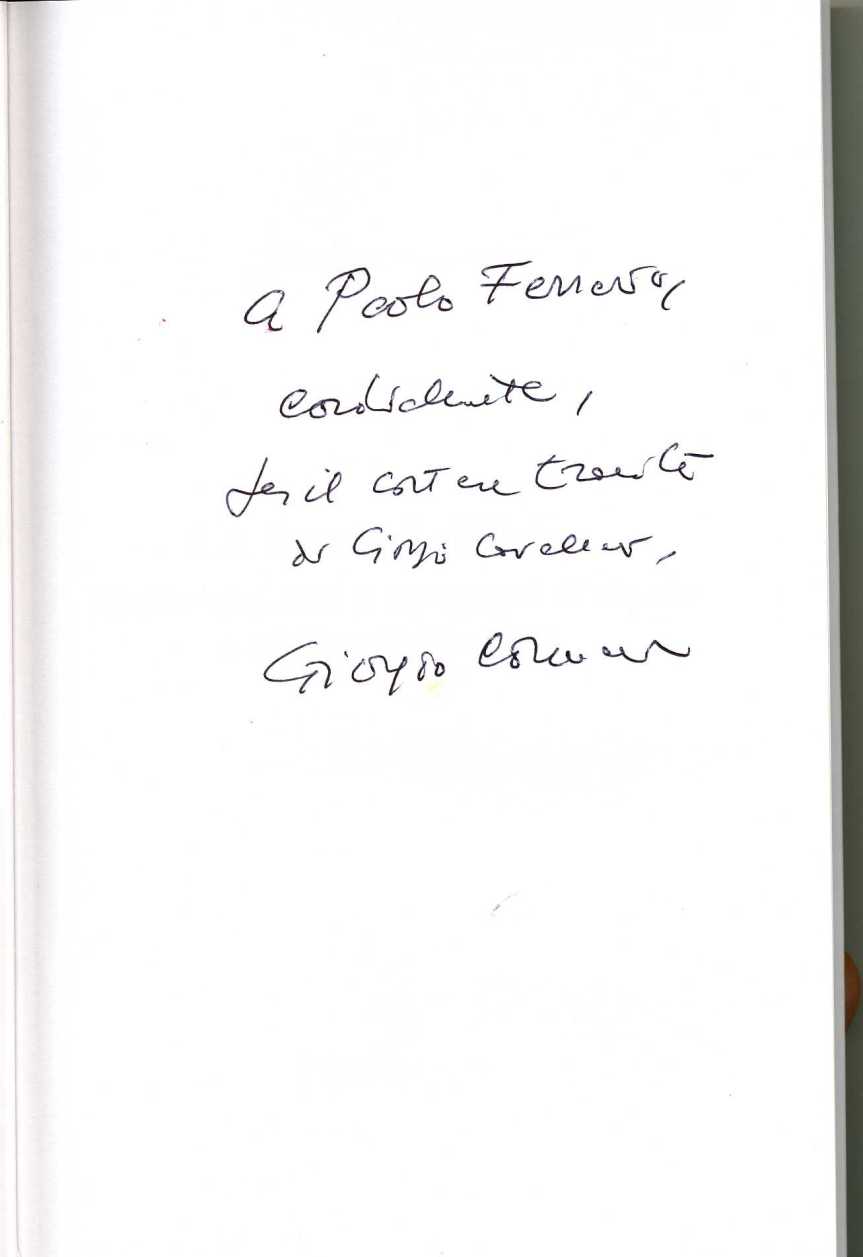 A Paolo Ferrero,
cordialmente,
per il cortese tramite
di Giorgio Cavalleri,
Giorgio